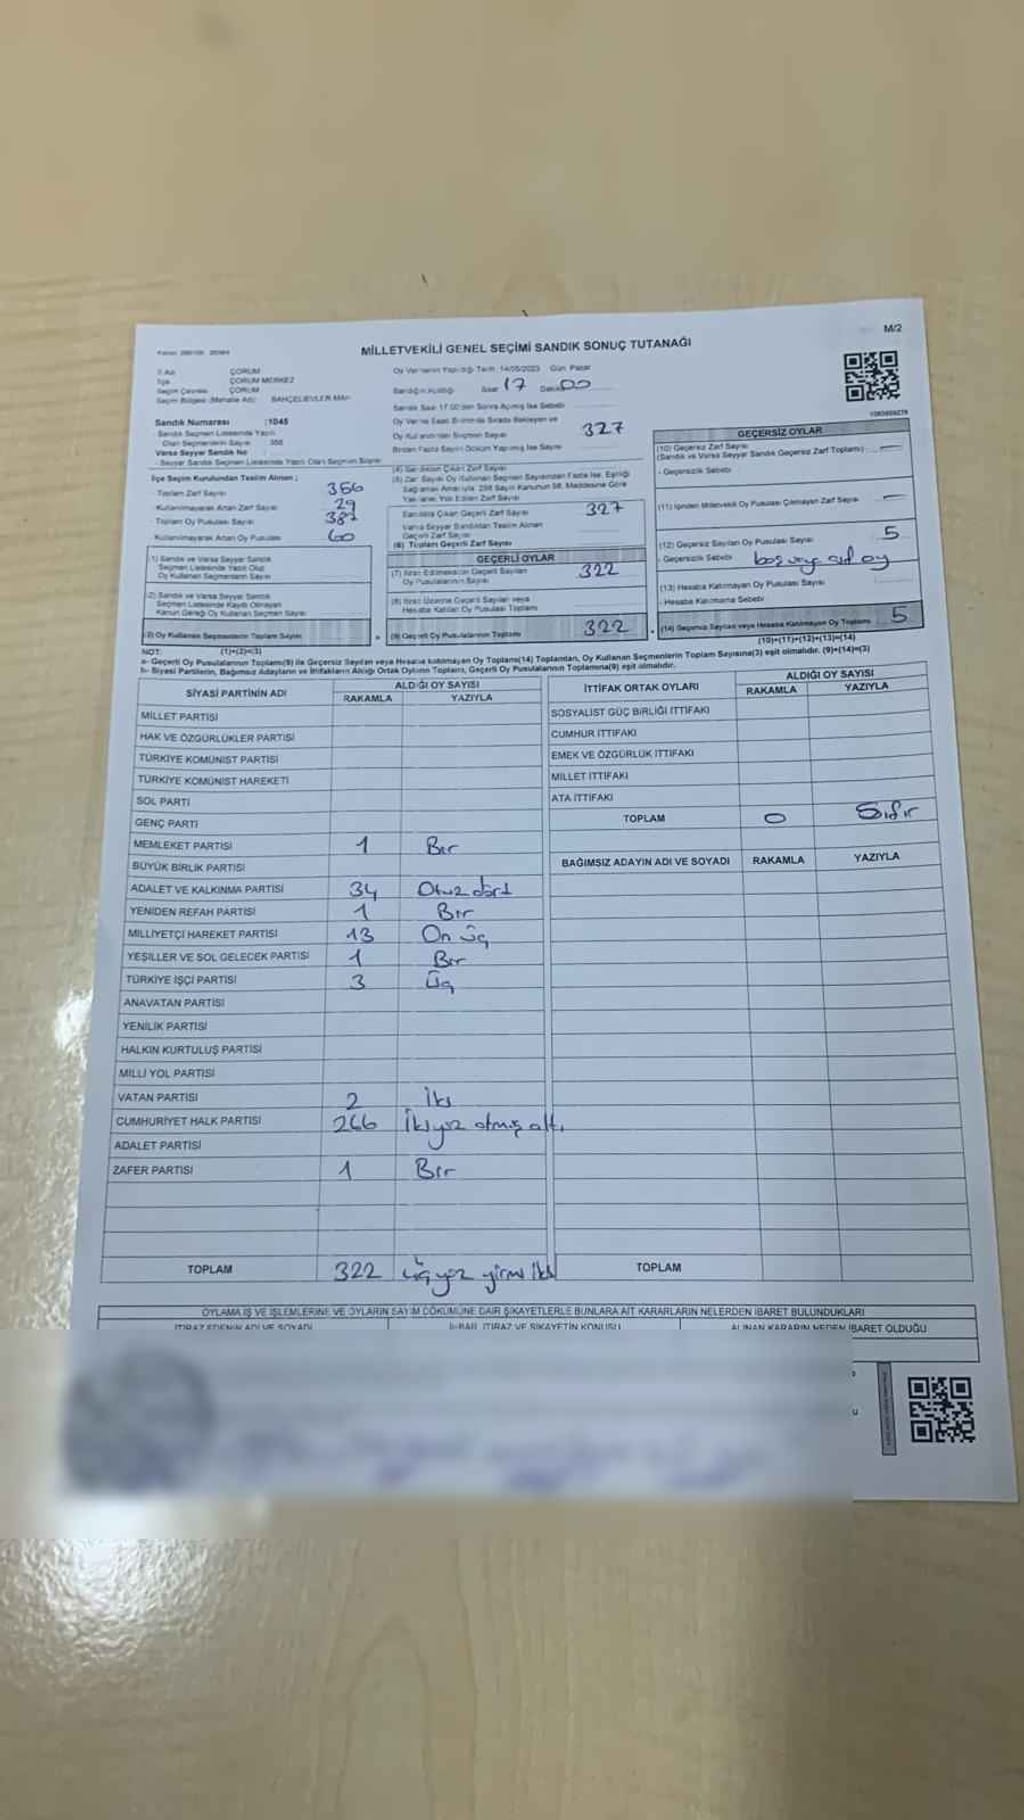 M/2
MİLLETVEKİLİ GENEL SEÇİMİ SANDIK SONUÇ TUTANAĞI
İl Adı ÇORUM
İlçe ÇORUM MERKEZ
Seçim Çevresi ÇORUM
Seçim Bölgesi (Mahalle Adı) BAHÇELİEVLER MAH
Sandık Numarası :1045
Sandık Seçmen Listesinde Yazılı
Olan Seçmenlerin Sayısı 356
Varsa Seyyar Sandık No
Seyyar Sandık Seçmen Listesinde Yazılı Olan Seçmen Sayısı
İlçe Seçim Kurulundan Teslim Alınan ;
Toplam Zarf Sayısı 356
Kullanılmayarak Artan Zarf Sayısı 29
Toplam Oy Pusulası Sayısı 387
Kullanılmayarak Artan Oy Pusulası 60
(1) Sandık ve Varsa Seyyar Sandık
Seçmen Listesinde Yazılı Olup
Oy Kullanan Seçmenlerin Sayısı
(2) Sandık ve Varsa Seyyar Sandık
Seçmen Listesinde Kayıtlı Olmayan
Kanun Gereği Oy Kullanan Seçmen Sayısı
(3) Oy Kullanan Seçmenlerin Toplam Sayısı
(1)+(2)=(3)
Oy Vermenin Yapıldığı Tarih :14/05/2023 Gün Pazar
Sandığın Açıldığı Saat 17 Dakika 00
Sandık Saat 17:00'den Sonra Açılmış İse Sebebi
Oy Verme Saati Bitiminde Sırada Bekleyen ve
Oy Kullandırılan Seçmen Sayısı 327
Birden Fazla Sayım Döküm Yapılmış İse Sayısı
(4) Sandıktan Çıkan Zarf Sayısı
(5) Zarf Sayısı Oy Kullanan Seçmen Sayısından Fazla İse, Eşitliği
Sağlamak Amacıyla 298 Sayılı Kanunun 98. Maddesine Göre
Yakılarak Yok Edilen Zarf Sayısı
Sandıkta Çıkan Geçerli Zarf Sayısı 327
Varsa Seyyar Sandıktan Teslim Alınan
Geçerli Zarf Sayısı
(6) Toplam Geçerli Zarf Sayısı
GEÇERLİ OYLAR
(7) İtiraz Edilmeksizin Geçerli Sayılan
Oy Pusulalarının Sayısı 322
(8) İtiraz Üzerine Geçerli Sayılan veya
Hesaba Katılan Oy Pusulası Toplamı
(9) Geçerli Oy Pusulalarının Toplamı 322
GEÇERSİZ OYLAR
(10) Geçersiz Zarf Sayısı
(Sandık ve Varsa Seyyar Sandık Geçersiz Zarf Toplamı)
- Geçersizlik Sebebi
(11) İçinden Milletvekili Oy Pusulası Çıkmayan Zarf Sayısı
(12) Geçersiz Sayılan Oy Pusulası Sayısı 5
- Geçersizlik Sebebi
(13) Hesaba Katılmayan Oy Pusulası Sayısı
- Hesaba Katılmama Sebebi
(14) Geçersiz Sayılan veya Hesaba Katılmayan Oy Toplamı 5
(10)+(11)+(12)+(13)=(14)
NOT:
a- Geçerli Oy Pusulasının Toplamı(9) ile Geçersiz Sayılan veya Hesaba katılmayan Oy Toplamı(14) Toplamları, Oy Kullanan Seçmenlerin Toplam Sayısına(3) eşit olmalıdır. (9)+(14)=(3)
b- Siyasi Partilerin, Bağımsız Adayların ve İttifakların Aldığı Ortak Oyların Toplamı, Geçerli Oy Pusulalarının Toplamına(9) eşit olmalıdır.
SİYASİ PARTİNİN ADI ALDIĞI OY SAYISI
RAKAMLA YAZIYLA
MİLLET PARTİSİ
HAK VE ÖZGÜRLÜKLER PARTİSİ
TÜRKİYE KOMÜNİST PARTİSİ
TÜRKİYE KOMÜNİST HAREKETİ
SOL PARTİ
GENÇ PARTİ
MEMLEKET PARTİSİ 1 Bir
BÜYÜK BİRLİK PARTİSİ
ADALET VE KALKINMA PARTİSİ 34 Otuz dört
YENİDEN REFAH PARTİSİ 1 Bir
MİLLİYETÇİ HAREKET PARTİSİ 13 On üç
YEŞİLLER VE SOL GELECEK PARTİSİ 1 Bir
TÜRKİYE İŞÇİ PARTİSİ 3 Üç
ANAVATAN PARTİSİ
YENİLİK PARTİSİ
HALKIN KURTULUŞ PARTİSİ
MİLLİ YOL PARTİSİ
VATAN PARTİSİ 2 İki
CUMHURİYET HALK PARTİSİ 266 İkiyüz atmış altı
ADALET PARTİSİ
ZAFER PARTİSİ 1 Bir
TOPLAM 322 üçyüz yirmi iki
İTTİFAK ORTAK OYLARI ALDIĞI OY SAYISI
RAKAMLA YAZIYLA
SOSYALİST GÜÇ BİRLİĞİ İTTİFAKI
CUMHUR İTTİFAKI
EMEK VE ÖZGÜRLÜK İTTİFAKI
MİLLET İTTİFAKI
ATA İTTİFAKI
TOPLAM 0 Sıfır
BAĞIMSIZ ADAYIN ADI VE SOYADI RAKAMLA YAZIYLA
TOPLAM
OYLAMA İŞ VE İŞLEMLERİNE VE OYLARIN SAYIM DÖKÜMÜNE DAİR ŞİKAYETLERLE BUNLARA AİT KARARLARIN NELERDEN İBARET BULUNDUKLARI
İTİRAZ EDENİN ADI VE SOYADI İHBAR, İTİRAZ VE ŞİKAYETİN KONUSU ALINAN KARARIN NEDEN İBARET OLDUĞU